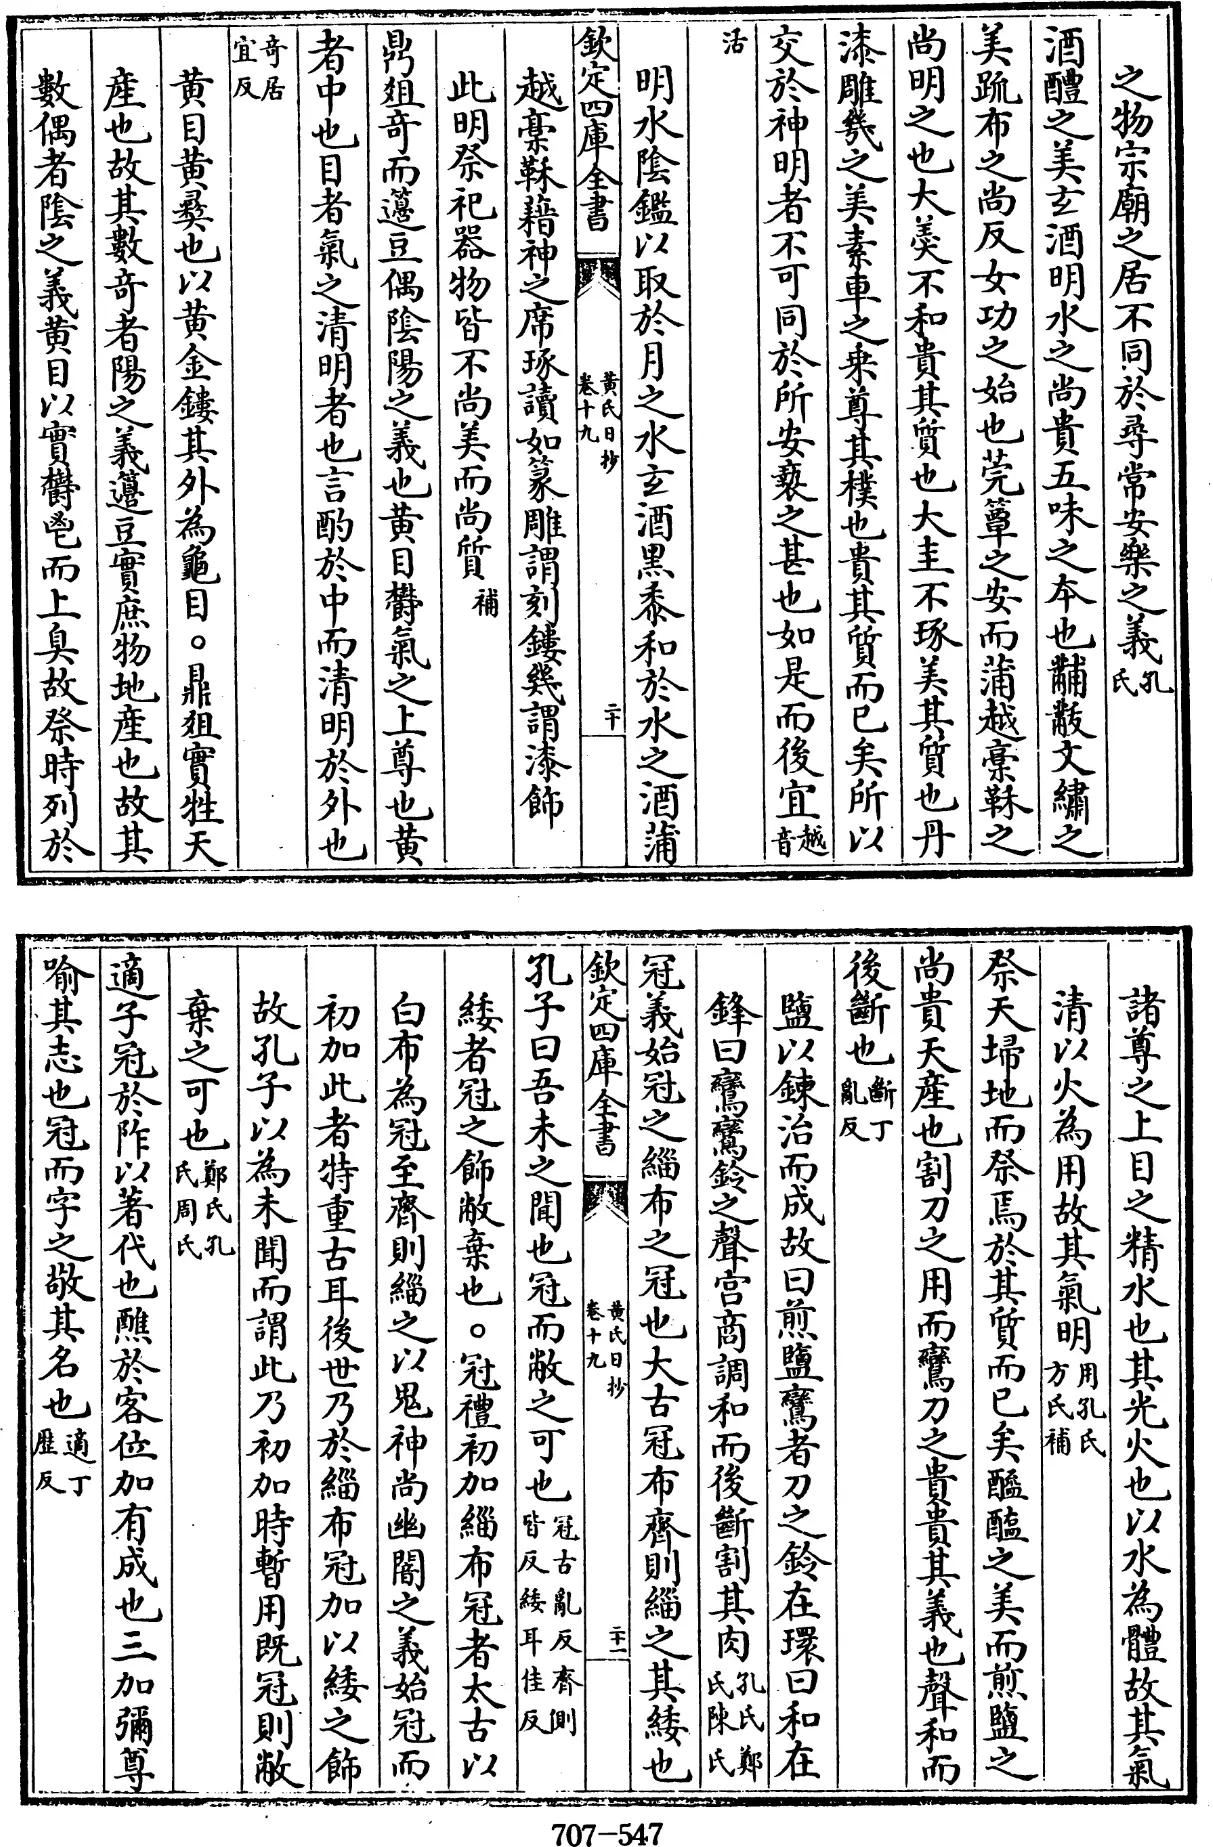 之物宗廟之居不同於尋常安樂之義孔氏
酒醴之美玄酒明水之尚貴五味之本也黼黻文繡之
美疏布之尚反女功之始也莞簟之安而蒲越稾鞂之
尚明之也大羹不和貴其質也大圭不琢美其質也丹
漆雕幾之美素車之乗尊其樸也貴其質而已矣所以
交於神明者不可同於所安褻之甚也如是而後宜越音
活
明水陰鑑以取於月之水玄酒黑黍和於水之酒蒲
欽定四庫全書
黃氏日抄
卷十九
二十
越稾鞂藉神之席琢讀如篆雕謂刻鏤幾謂漆飾
此明祭祀器物皆不尚美而尚質補
鼎俎奇而籩豆偶陰陽之義也黄目鬱氣之上尊也黄
者中也目者氣之清明者也言酌於中而清明於外也
奇居宜反
黄目黄彛也以黄金鏤其外為龜目。鼎俎實牲天
産也故其數奇者陽之義籩豆實庶物地産也故其
數偶者陰之義黄目以實鬱鬯而上臭故祭時列於
諸尊之上目之精水也其光火也以水為體故其氣
清以火為用故其氣明用孔氏方氏補
祭天埽地而祭焉於其質而已矣醯醢之美而煎鹽之
尚貴天産也割刀之用而鸞刀之貴貴其義也聲和而
後斷也斷丁亂反
鹽以鍊治而成故曰煎鹽鸞者刀之鈴在環曰和在
鋒曰鸞鸞鈴之聲宫商調和而後斷割其肉孔氏鄭氏陳氏
冠義始冠之緇布之冠也大古冠布齊則緇之其緌也
欽定四庫全書
黃氏日抄
卷十九
二十一
孔子曰吾未之聞也冠而敝之可也冠古亂反齊側皆反緌耳佳反
緌者冠之飾敝棄也。冠禮初加緇布冠者太古以
白布為冠至齊則緇之以鬼神尚幽闇之義始冠而
初加此者特重古耳後世乃於緇布冠加以緌之飾
故孔子以為未聞而謂此乃初加時暫用既冠則敝
棄之可也鄭氏孔氏周氏
適子冠於阼以著代也醮於客位加有成也三加彌尊
喻其志也冠而字之敬其名也適丁歴反
707-547